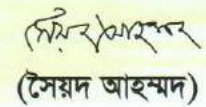 সৈয়দ আহম্মদ
(সৈয়দ আহম্মদ)